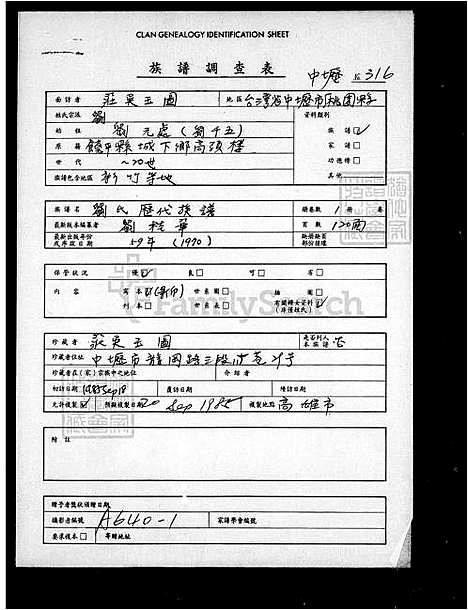 CLAN GENEALOGY IDENTIFICATION SHEET
族譜調查表
中壢 316
面訪者 莊吳玉圖 地區 台灣省中壢市桃園縣
姓氏宗派 劉 資料類別
始祖 劉元處(劉千五) 族譜☑
原籍 饒平縣城下鄉高頭樓 家譜□
世代 ~20世 功德榜□
族譜包含地區 新竹等地 其他
族譜名 劉氏歷代族譜 冊卷數 1 冊 卷
最新版本編纂者 劉桂華 頁數 120面
最新出版年份或序跋日期 59年 (1970)
保管狀況 優☑ 良□ 可□ 劣□
內容 寫本☑(影印) 世系圖□ 插圖□
刊本□ 世系表□ 有關婦女資料☑
FamilySearch
珍藏者 莊吳玉圖 是否列入本族譜 否
珍藏者住址
珍藏者在(家)宗族中之地位 介紹者
初訪日期 1985 Sep 18 複訪日期 增訪日期
允許複製☑ 預擬複製日 20 Sep 1985 複製地點 高雄市
附註
贈予者獎狀頒贈日期
攝影者編號 A640-1 家譜學會編號
要求複本□ 寄贈地址